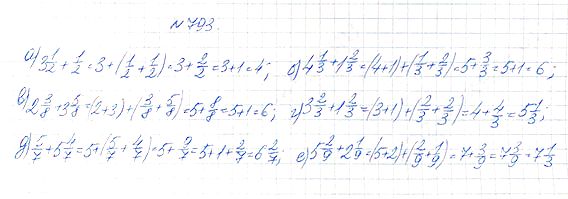 №793.
а) 3 1/2 + 1/2 = 3 + (1/2 + 1/2) = 3 + 2/2 = 3+1 = 4; б) 4 1/3 + 1 2/3 = (4+1) + (1/3 + 2/3) = 5 + 3/3 = 5+1 = 6;
в) 2 3/8 + 3 5/8 = (2+3) + (3/8 + 5/8) = 5 + 8/8 = 5+1 = 6; г) 3 2/3 + 1 2/3 = (3+1) + (2/3 + 2/3) = 4 + 4/3 = 5 1/3;
д) 5/7 + 5 4/7 = 5 + (5/7 + 4/7) = 5 + 9/7 = 5 + 1 + 2/7 = 6 2/7; е) 5 2/9 + 2 1/9 = (5+2) + (2/9 + 1/9) = 7 + 3/9 = 7 3/9 = 7 1/3